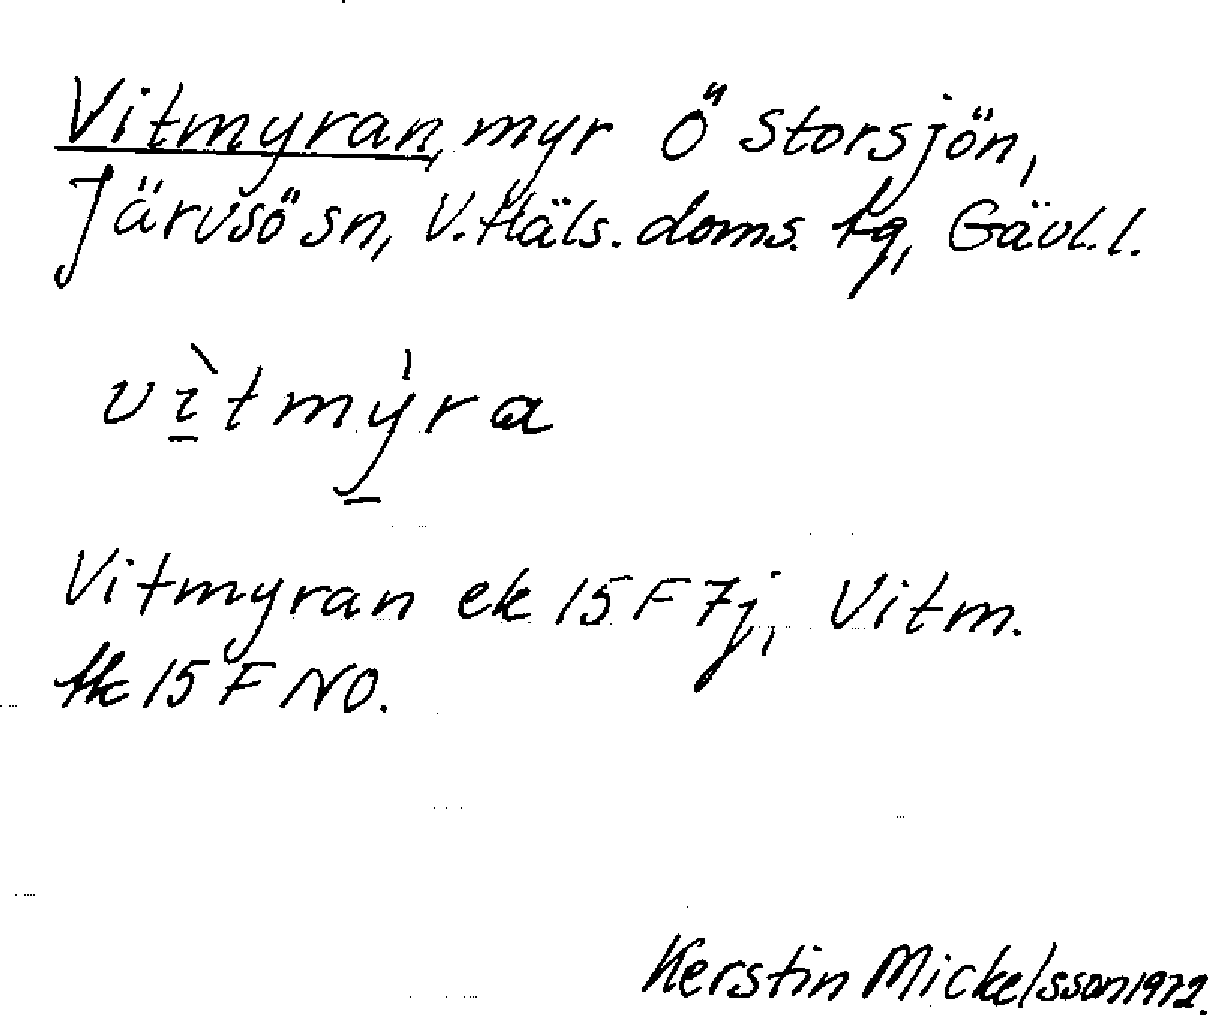 Vitmyran, myr Ö Storsjön,
Järvsö sn, V. Häls. doms. tg, Gävl. l.
vì̠tmy̠̍ra
Vitmyran ek 15 F 7j, Vitm.
tk 15 F NO.
Kerstin Mickelsson 1972.